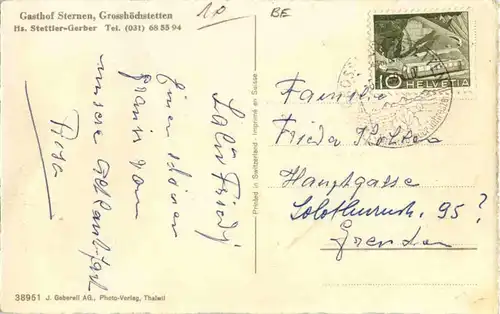 Gasthof Sternen, Grosshöchstetten
Hs. Stettler-Gerber Tel. (031) 68 55 94
BE
10
HELVETIA
Salü Friedj
Einen schönen
von
unsere
Rosa
Printed in Switzerland - Imprimé en Suisse
Familie
Frieda
Hauptgasse
Solothurnstr. 95?
Grenchen
38951 J. Gaberell AG., Photo-Verlag, Thalwil